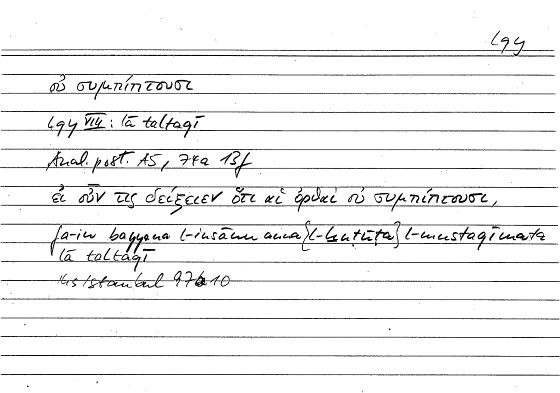 lqy
οὐ συμπίπτουσι
lqy VIII: lā taltaqī
Anal. post. A5, 74a 13f
εἰ οὖν τις δείξειεν ὅτι αἱ ὀρθαὶ οὐ συμπίπτουσι,
fa-in bayyana l-insānu anna {l-ḫuṭūṭa} l-mustaqīmata
lā taltaqī
Hs Istanbul 10